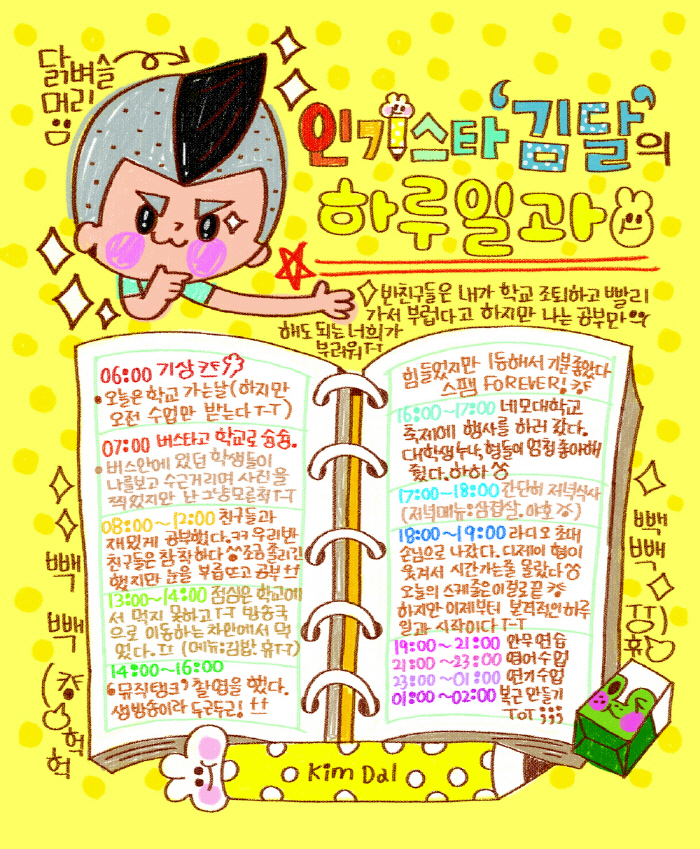 닭벼슬
머리
인기스타 '김달'의
하루일과
반친구들은 내가 학교 조퇴하고 빨리
가서 부럽다고 하지만 나는 공부만
해도 되는 너희가
부러워 T-T
06:00 기상
오늘은 학교 가는날(하지만
오전 수업만 받는다 T-T)
07:00 버스타고 학교로 슝슝.
버스안에 있던 학생들이
나를보고 수근거리며 사진을
찍었지만 난 그냥모른척 T-T
08:00~12:00 친구들과
재밌게 공부했다. ㅋㅋ 우리반
친구들은 참 착하다 조금 졸리긴
했지만 눈을 부릅뜨고 공부!!
13:00~14:00 점심은 학교에
서 먹지 못하고 T-T 방송국
으로 이동하는 차안에서 먹
었다. ㅠㅠ (메뉴:김밥. 우유T-T)
14:00~16:00
'뮤직탱크' 촬영을 했다.
생방송이라 두근두근! !!
힘들었지만 1등해서 기분좋았다
스팸 FOREVER!
16:00~17:00 네모대학교
축제에 행사를 하러 갔다.
대학생 누나, 형들이 엄청 좋아해
줬다. 하하
17:00~18:00 간단히 저녁식사
(저녁메뉴:삼합살. 야호)
18:00~19:00 라디오 초대
손님으로 나갔다. 디제이 형이
웃겨서 시간가는줄 몰랐다
오늘의 스케줄은 이걸로 끝
하지만 이제부터 본격적인 하루
일과 시작이다 T-T
19:00~21:00 안무연습
21:00~23:00 영어수업
23:00~01:00 연기수업
01:00~02:00 복근 만들기
ToT ;;;
빽
빽
(
헉
헉
빽
빽
휴
Kim Dal